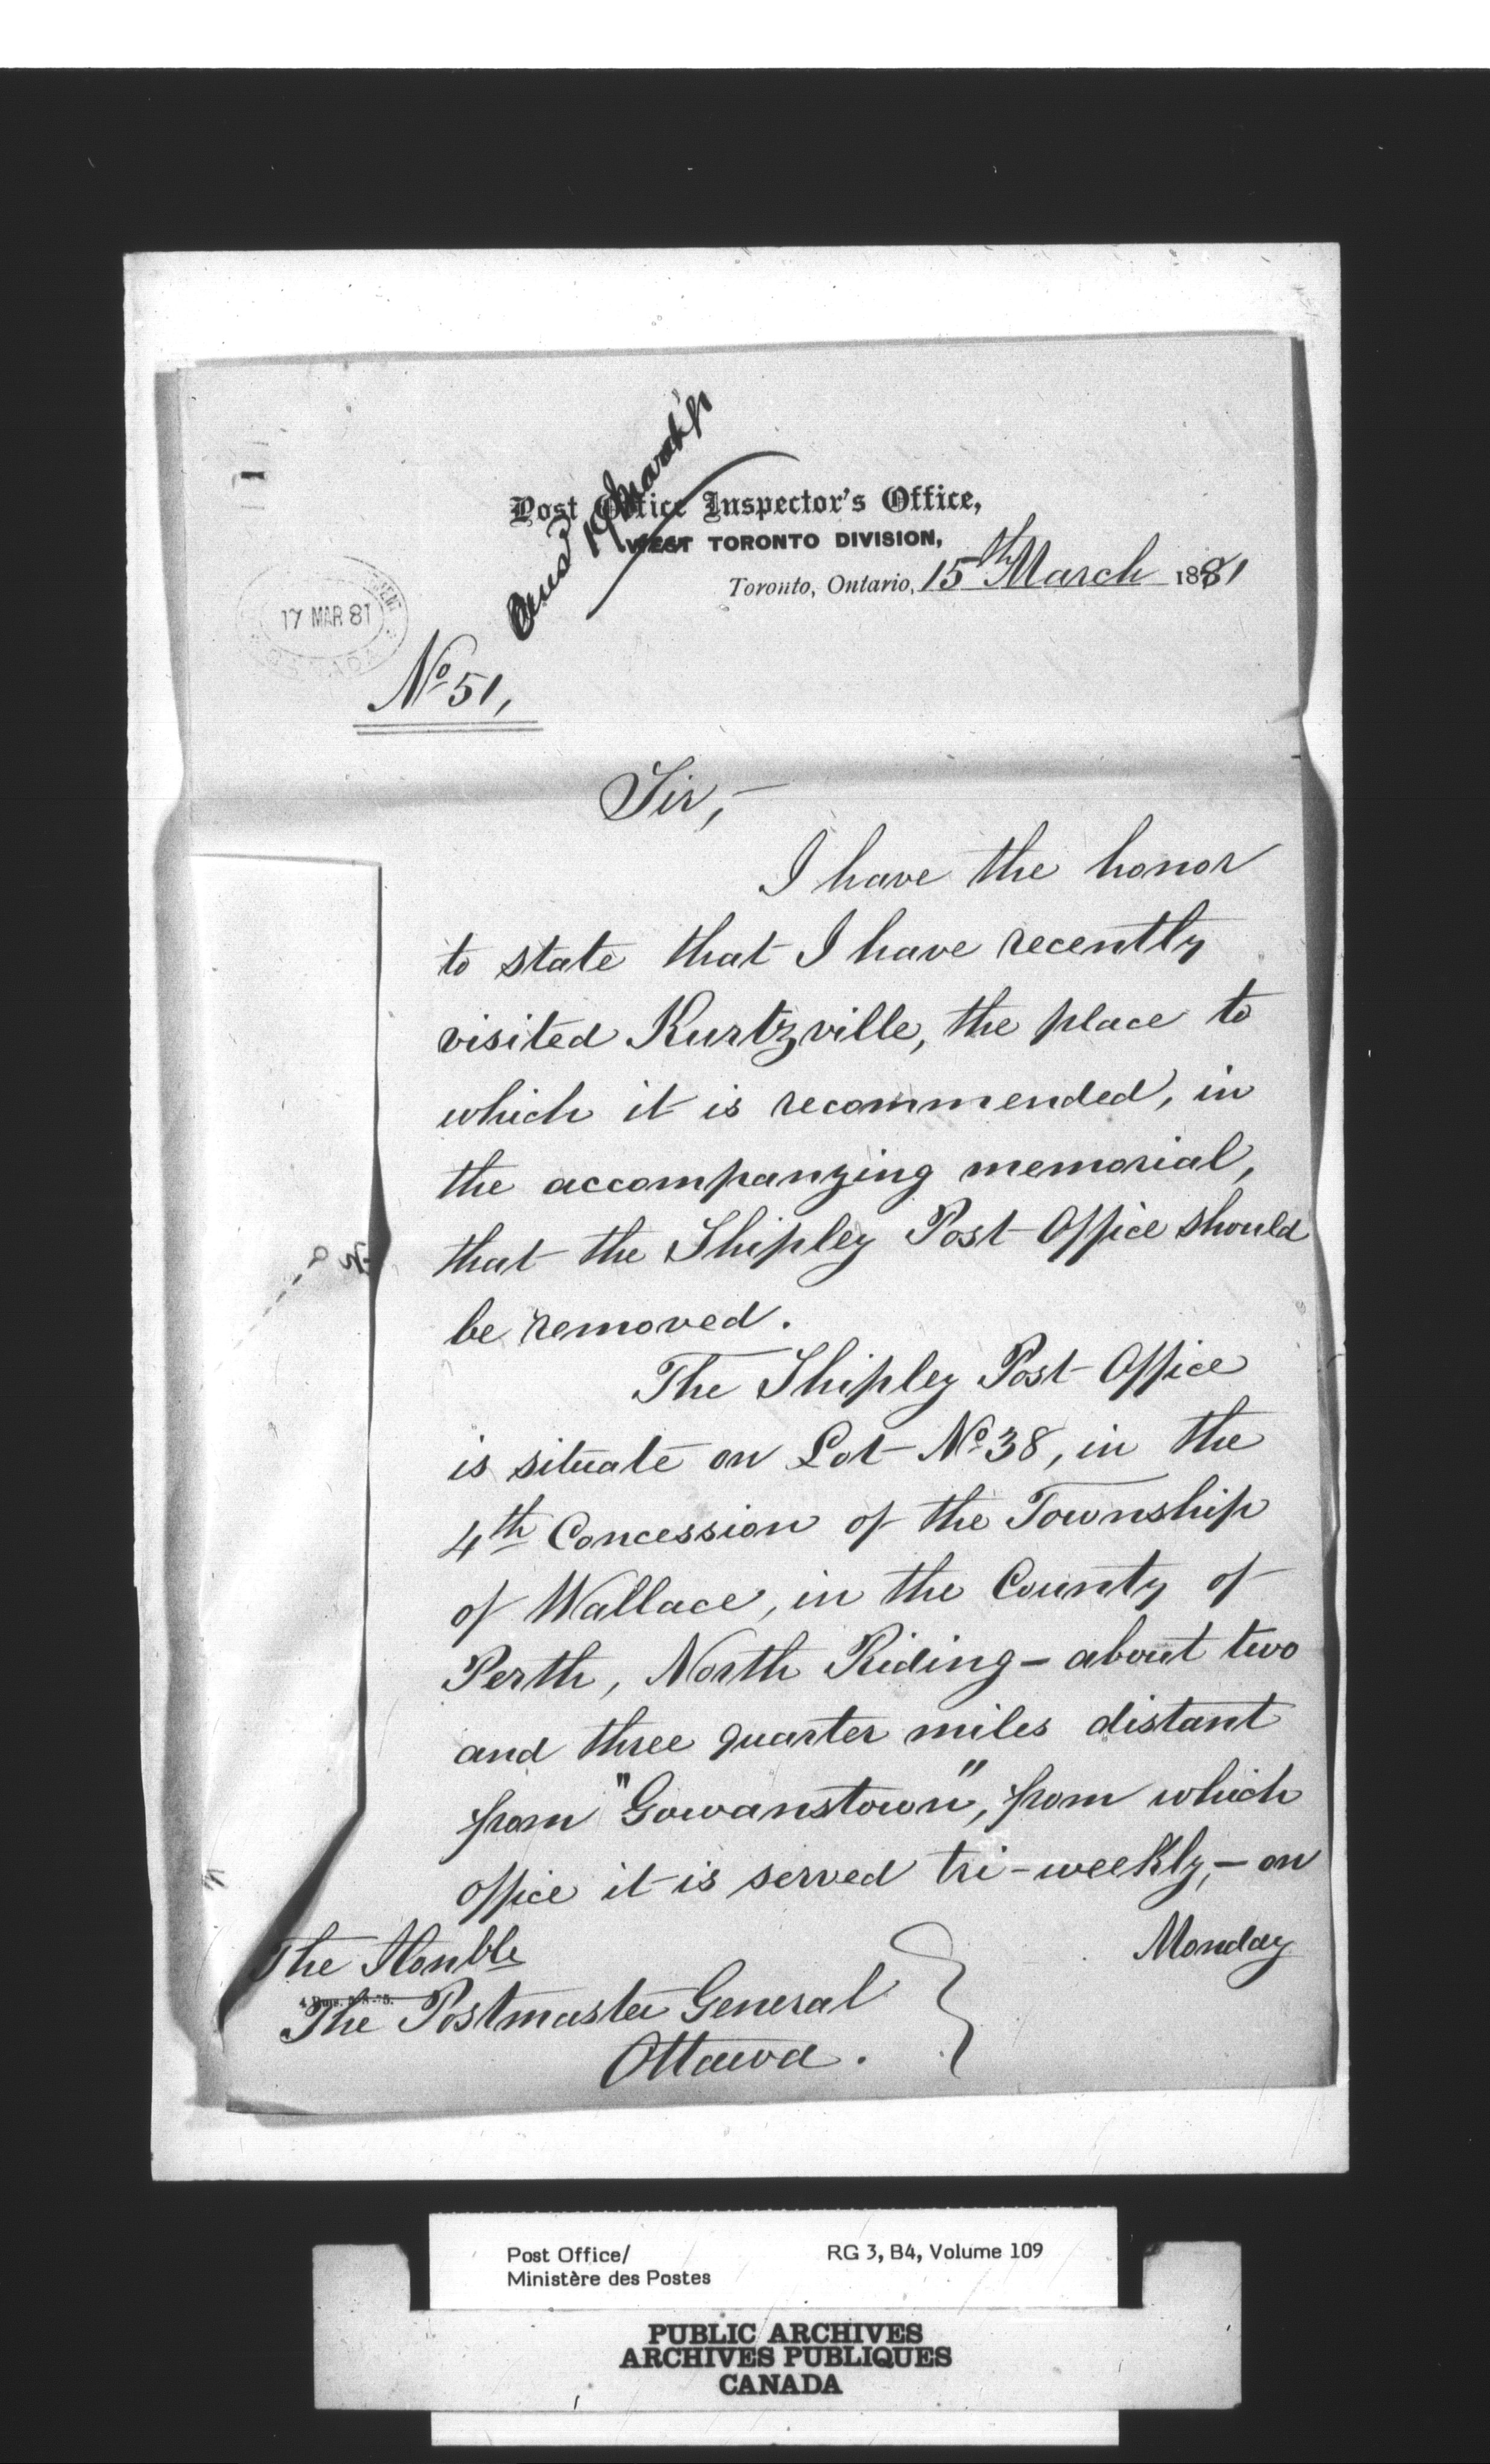 Ansd 19 March
Post Office Inspector's Office,
WEST TORONTO DIVISION,
Toronto, Ontario, 15th March 1881
17 MAR 81
CANADA
No 51,
Sir,—
I have the honor
to state that I have recently
visited Kurtzville, the place to
which it is recommended, in
the accompanying memorial,
that the Shipley Post Office should
be removed.
The Shipley Post Office
is situate on Lot No 38, in the
4th Concession of the Township
of Wallace, in the County of
Perth, North Riding – about two
and three quarter miles distant
from "Gowanstown", from which
office it is served tri-weekly, – on
Monday
The Honble
The Postmaster General
Ottawa.
Post Office/
Ministère des Postes
RG 3, B4, Volume 109
PUBLIC ARCHIVES
ARCHIVES PUBLIQUES
CANADA